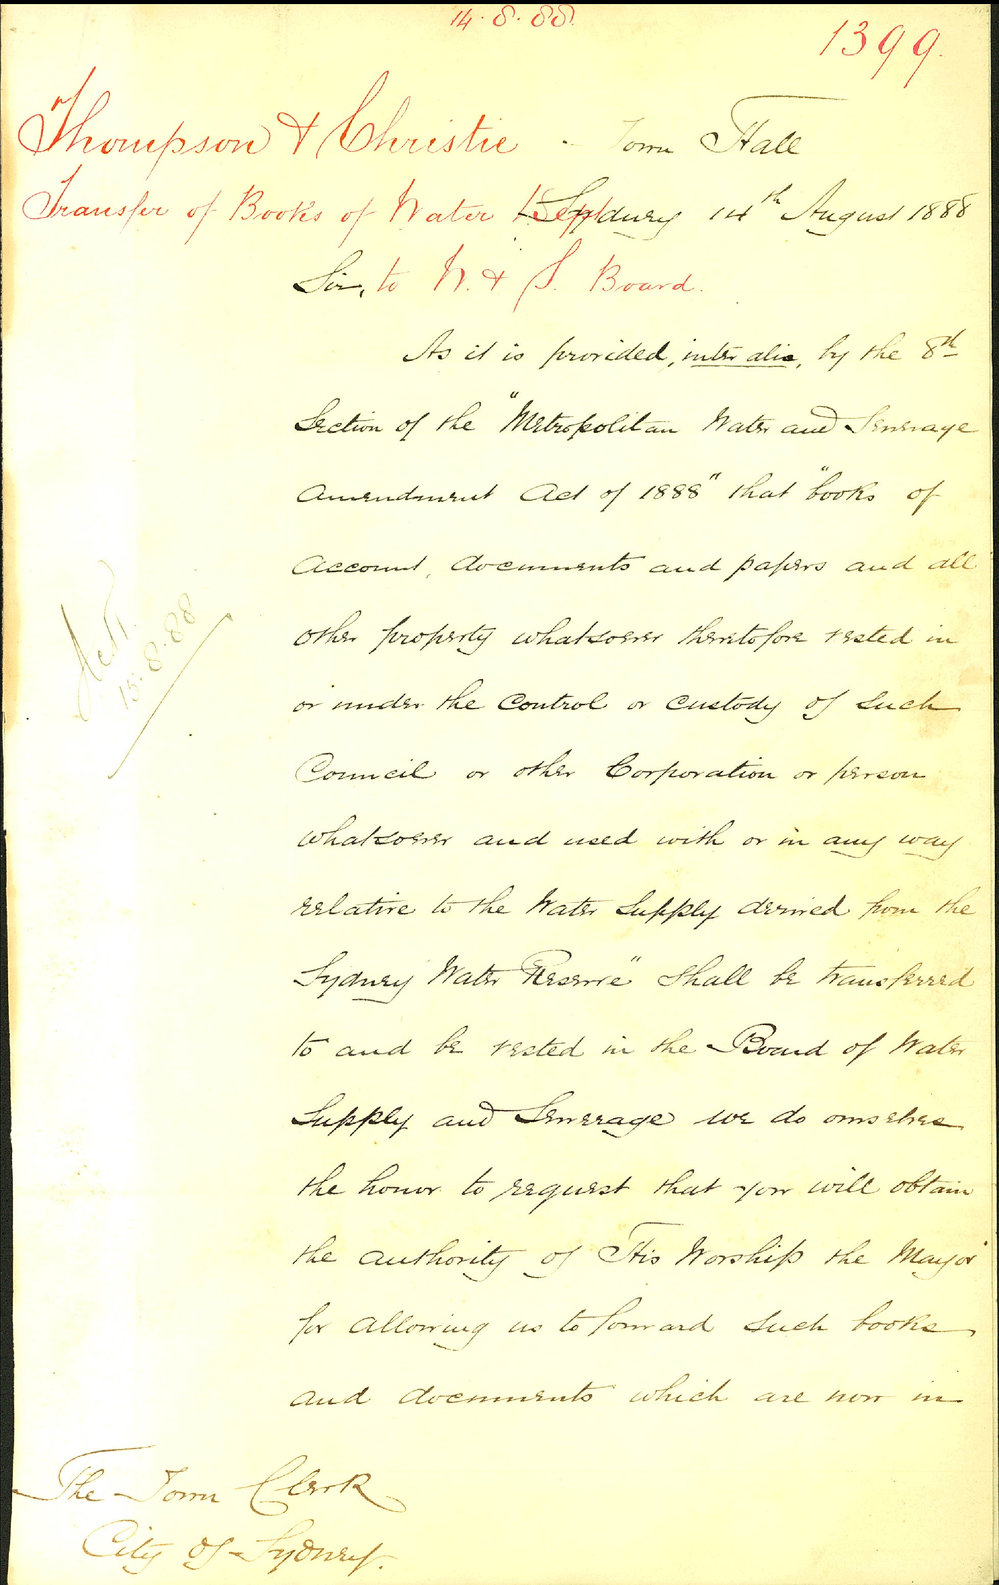 14.8.88.
1399.
Thompson & Christie
Town Hall
Transfer of Books of Water Dept
Sydney 14th August 1888
to W. & S. Board.
Sir,
As it is provided, inter alia, by the 8th
Section of the "Metropolitan Water and Sewerage
Amendment Act of 1888" that "books of
Account, documents and papers and all
other property whatsoever theretofore vested in
or under the control or custody of such
Council or other Corporation or person
whatsoever and used with or in any way
relative to the Water Supply derived from the
Sydney Water Reserve" shall be transferred
to and be vested in the Board of Water
Supply and Sewerage we do ourselves
the honor to request that you will obtain
the authority of His Worship the Mayor
for allowing us to forward such books
and documents which are now in
15.8.88
The Town Clerk
City of Sydney.